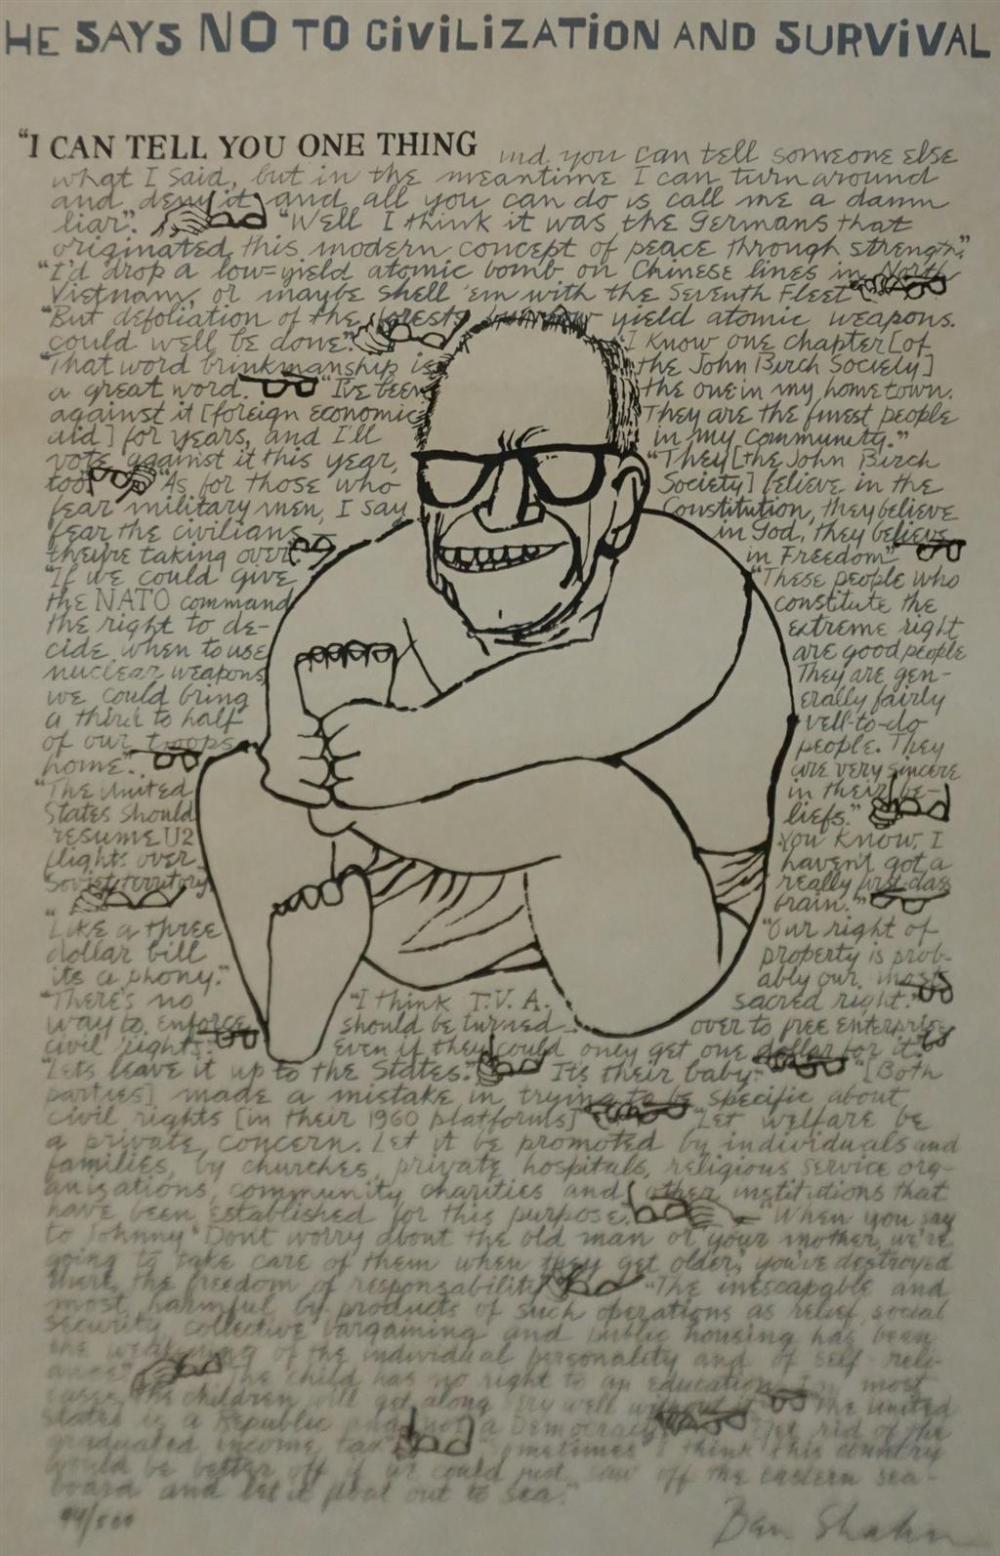 HE SAYS NO TO CIVILIZATION AND SURVIVAL
"I CAN TELL YOU ONE THING and you can tell someone else
what I said, but in the meantime I can turn around
and deny it, and all you can do is call me a damn
liar." "Well I think it was the Germans that
originated this modern concept of peace through strength."
"I'd drop a low=yield atomic bomb on Chinese lines in North
Vietnam, or maybe shell 'em with the Seventh Fleet"
"But defoliation of the forests by low yield atomic weapons.
could well be done." "I know one chapter [of
"That word brinkmanship is the John Birch Society]
a great word." "I've been the one in my home town.
against it [foreign economic They are the finest people
aid] for years, and I'll in my community."
vote against it this year, "They [the John Birch
too" "As for those who Society] believe in the
fear military men, I say Constitution, they believe
fear the civilians in God, they believe
they're taking over." in Freedom"
"If we could give "These people who
the NATO command constitute the
the right to de- extreme right
cide when to use are good people
nuclear weapons, They are gen-
we could bring erally fairly
a third to half well-to-do
of our troops people. They
home." are very sincere
"The United in their be-
States should liefs."
resume U2 You know, I
flights over haven't got a
Soviet territory" really first class
brain."
"Like a three "Our right of
dollar bill property is prob-
its a phony." ably our most
"There's no "I think T.V.A. sacred right."
way to enforce should be turned over to free enterprise
civil rights." Even if they could only get one dollar for it"
"Lets leave it up to the States." Its their baby." "[Both
parties] made a mistake in trying to be specific about
civil rights [in their 1960 platforms]" "Let welfare be
a private concern. Let it be promoted by individuals and
families, by churches, private hospitals, religious service org-
anizations, community charities and other institutions that
have been established for this purpose." "When you say
to Johnny "Dont worry about the old man or your mother, we're
going to take care of them when they get older, you've destroyed
there the freedom of responsability" "The inescapable and
most harmful by products of such operations as relief, social
security collective bargaining and public housing has been
the weakening of the individual personality and of self-reli-
ance" "The child has no right to an education. In most
cases the children will get along very well without it" "The United
States is a Republic and not a Democracy" "Get rid of the
graduated income tax" "Sometimes I think this country
would be better off if we could just saw off the eastern sea-
board and let it float out to sea."
94/500 Ben Shahn